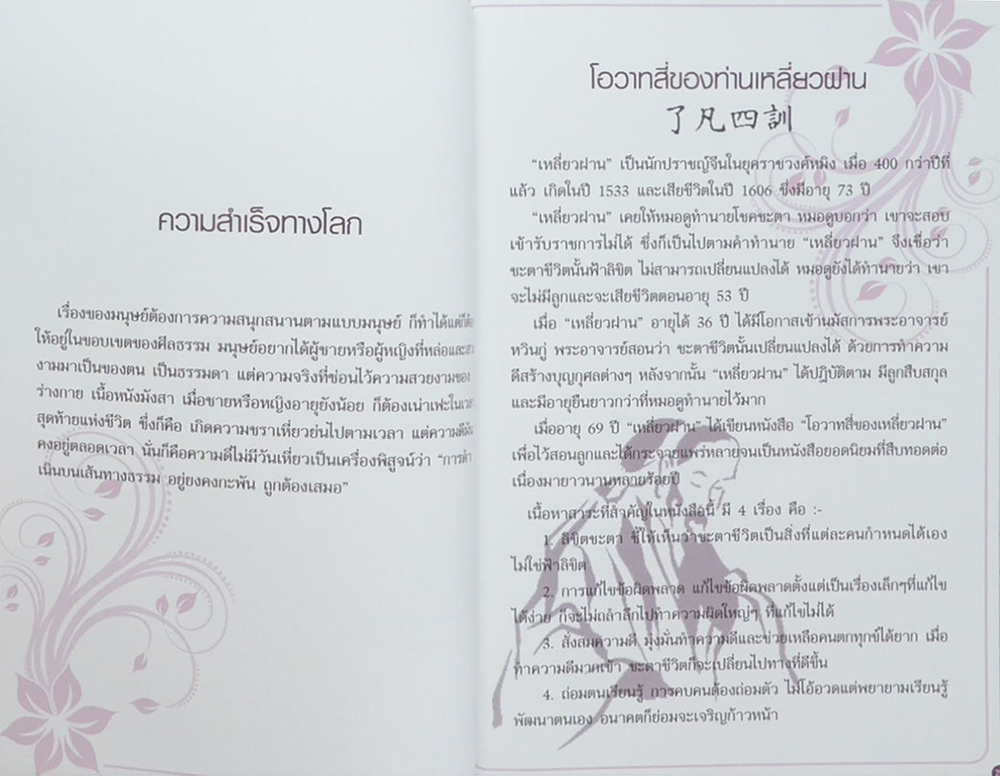 ความสำเร็จทางโลก
เรื่องของมนุษย์ต้องการความสนุกสนานตามแบบมนุษย์ ก็ทำได้แต่ก็ต้อง
ให้อยู่ในขอบเขตของศีลธรรม มนุษย์อยากได้ผู้ชายหรือผู้หญิงที่หล่อและสวย
งามมาเป็นของตน เป็นธรรมดา แต่ความจริงที่ซ่อนไว้ความสวยงามของ
ร่างกาย เนื้อหนังมังสา เมื่อชายหรือหญิงอายุยังน้อย ก็ต้องเน่าเฟะในเวลา
สุดท้ายแห่งชีวิต ซึ่งก็คือ เกิดความชราเหี่ยวย่นไปตามเวลา แต่ความดีนั้น
คงอยู่ตลอดเวลา นั่นก็คือความดีไม่มีวันเหี่ยวเป็นเครื่องพิสูจน์ว่า “การดำ
เนินบนเส้นทางธรรม อยู่ยงคงกะพัน ถูกต้องเสมอ”
โอวาทสี่ของท่านเหลี่ยวฝาน
了凡四訓
“เหลี่ยวฝาน” เป็นนักปราชญ์จีนในยุคราชวงศ์หมิง เมื่อ 400 กว่าปีที่
แล้ว เกิดในปี 1533 และเสียชีวิตในปี 1606 ซึ่งมีอายุ 73 ปี
“เหลี่ยวฝาน” เคยให้หมอดูทำนายโชคชะตา หมอดูบอกว่า เขาจะสอบ
เข้ารับราชการไม่ได้ ซึ่งก็เป็นไปตามคำทำนาย “เหลี่ยวฝาน” จึงเชื่อว่า
ชะตาชีวิตนั้นฟ้าลิขิต ไม่สามารถเปลี่ยนแปลงได้ หมอดูยังได้ทำนายว่า เขา
จะไม่มีลูกและจะเสียชีวิตตอนอายุ 53 ปี
เมื่อ “เหลี่ยวฝาน” อายุได้ 36 ปี ได้มีโอกาสเข้านมัสการพระอาจารย์
หวินกู่ พระอาจารย์สอนว่า ชะตาชีวิตนั้นเปลี่ยนแปลงได้ ด้วยการทำความ
ดีสร้างบุญกุศลต่างๆ หลังจากนั้น “เหลี่ยวฝาน” ได้ปฏิบัติตาม มีลูกสืบสกุล
และมีอายุยืนยาวกว่าที่หมอดูทำนายไว้มาก
เมื่ออายุ 69 ปี “เหลี่ยวฝาน” ได้เขียนหนังสือ “โอวาทสี่ของเหลี่ยวฝาน”
เพื่อไว้สอนลูกและได้กระจายแพร่หลายจนเป็นหนังสือยอดนิยมที่สืบทอดต่อ
เนื่องมายาวนานหลายร้อยปี
เนื้อหาสาระที่สำคัญในหนังสือนี้ มี 4 เรื่อง คือ :-
1. ลิขิตชะตา ชี้ให้เห็นว่าชะตาชีวิตเป็นสิ่งที่แต่ละคนกำหนดได้เอง
ไม่ใช่ฟ้าลิขิต
2. การแก้ไขข้อผิดพลาด แก้ไขข้อผิดพลาดตั้งแต่เป็นเรื่องเล็กๆที่แก้ไข
ได้ง่าย ก็จะไม่ถลำลึกไปทำความผิดใหญ่ๆ ที่แก้ไขไม่ได้
3. สั่งสมความดี มุ่งมั่นทำความดีและช่วยเหลือคนตกทุกข์ได้ยาก เมื่อ
ทำความดีมากเข้า ชะตาชีวิตก็จะเปลี่ยนไปทางที่ดีขึ้น
4. ถ่อมตนเรียนรู้ การคบคนต้องถ่อมตัว ไม่โอ้อวดแต่พยายามเรียนรู้
พัฒนาตนเอง อนาคตก็ย่อมจะเจริญก้าวหน้า